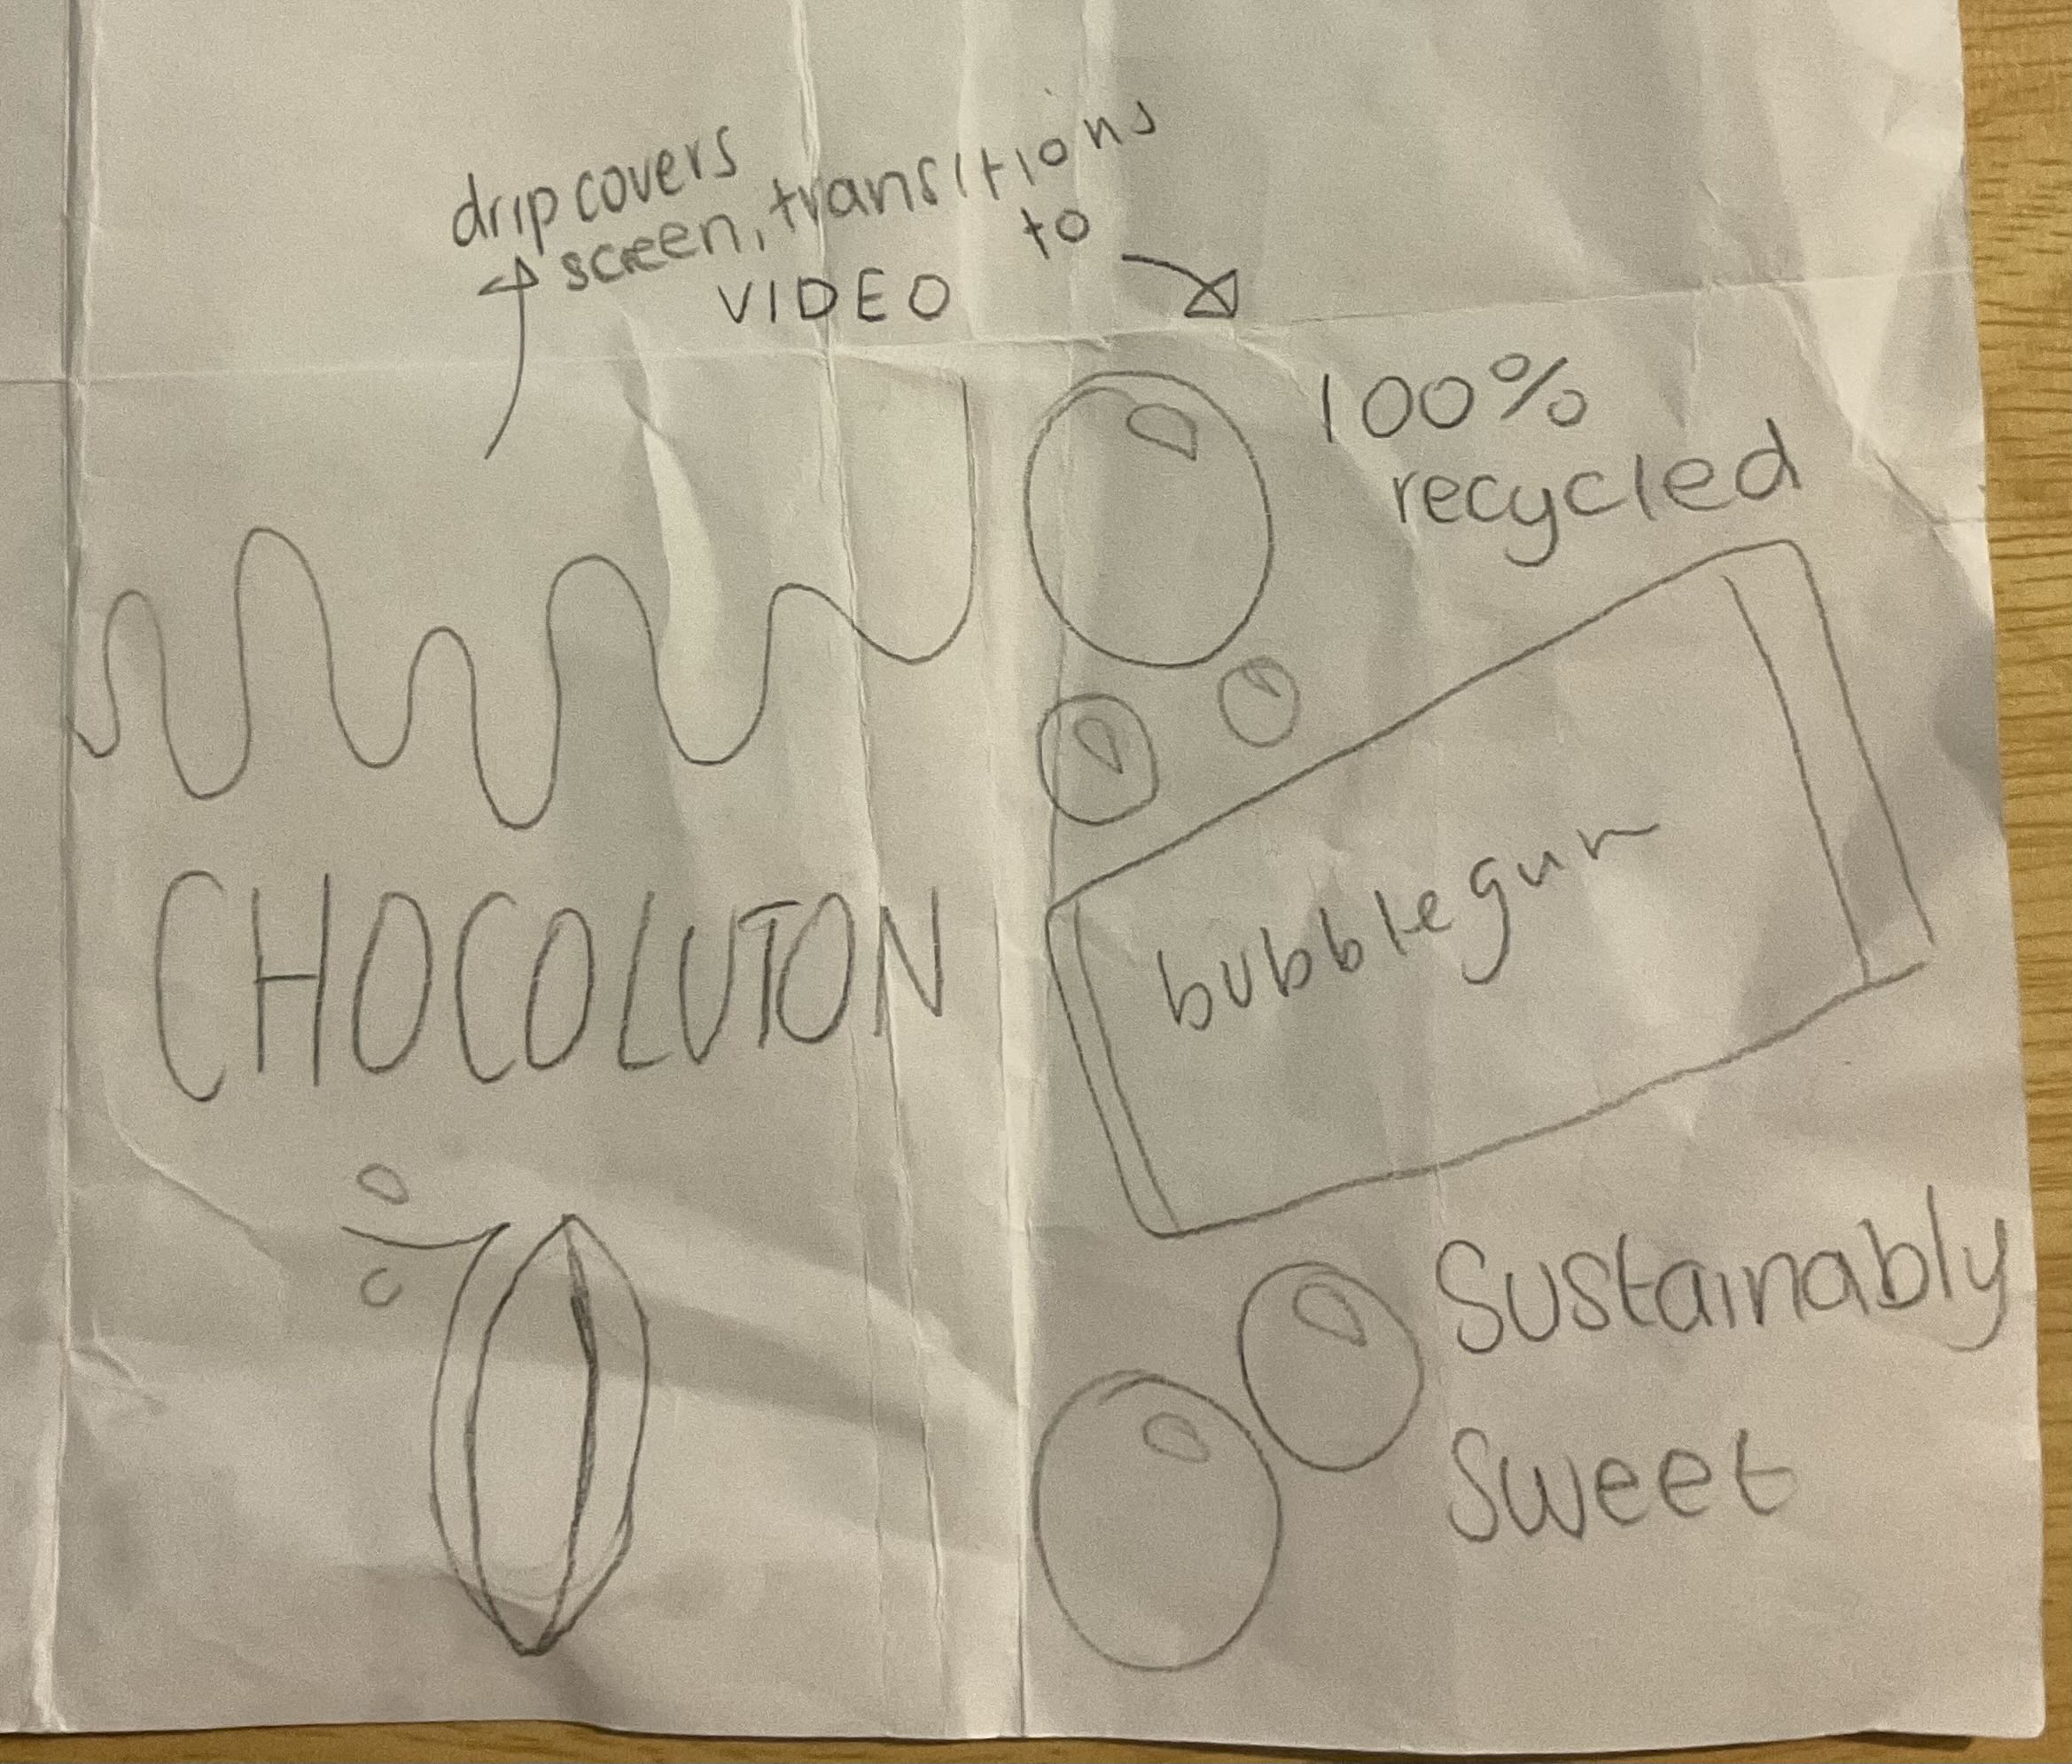 drip covers
screen, transitions
to
VIDEO
100%
recycled
CHOCOLUTON
bubblegum
Sustainably
Sweet